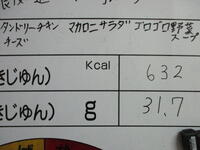 タンドリーチキン マカロニサラダ ゴロゴロ野菜
チーズ スープ
きじゅん) Kcal 632
きじゅん) g 31.7